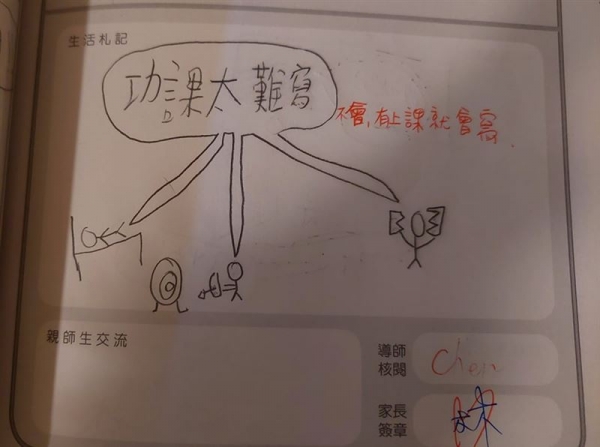 生活札記
功課太難寫
不會,有上課就會寫
親師生交流
導師
核閱
Chen
家長
簽章